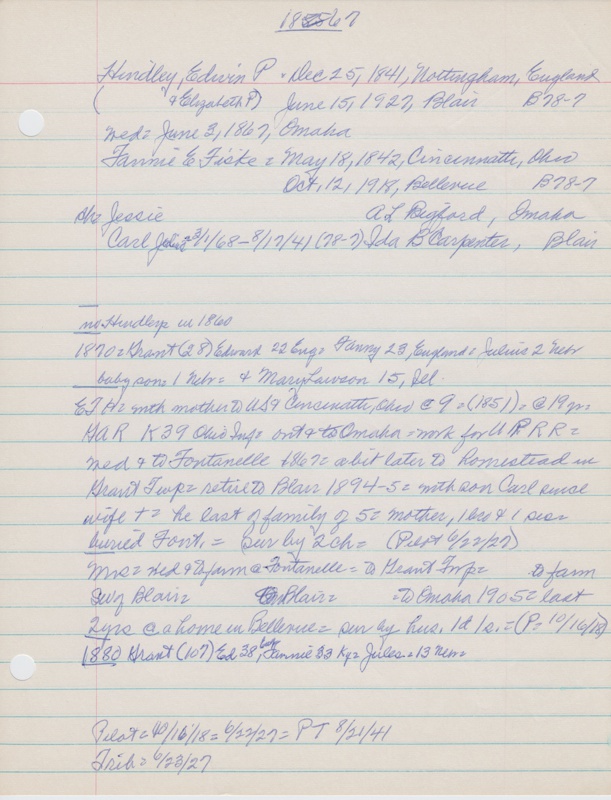 1867
Hindley, Edwin P * Dec 25, 1841, Nottingham, England
( & Elizabeth P) June 15, 1927, Blair B78-7
wed = June 3, 1867, Omaha
Fannie E Fiske = May 18, 1842, Cincinnatti, Ohio
Oct, 12, 1918, Bellevue B78-7
ch = Jessie A L Bigford, Omaha
Carl = 3/1/68 - 8/17/41 (78-7) Ida B Carpenter, Blair
no Hindleys in 1860
1870 = Grant (28) Edward 22 Eng = Fanny 23, England = Julius 2 Nebr
baby son = 1 Nebr = & Mary Lawson 15, Ill.
= with mother to USA Cincinatti, Ohio @ 9 = (1851) = @ 19 yr =
GAR K 39 Ohio Inf = out & to Omaha = work for U P R R =
wed & to Fontanelle 1867 = a bit later to homestead in
Grant Twp = retire to Blair 1894-5 = with son Carl since
wife + = he last of family of 5 = mother, 1 bro & 1 sis =
buried Font. = sur by 2 ch = (Pilot 6/22/27)
Mrs = wed & to farm @ Fontanelle = to Grant Twp = to farm
Blair = Blair = to Omaha 1905 = last
2 yrs @ a home in Bellevue = sur by hus. 1d 1s. = (P = 10/16/18)
1880 Grant (107) Ed 38, Fannie 33 = Jules = 13 =
Pilot = 10/16/18 = 6/22/27 = PT 8/21/41
Trib = 6/23/27